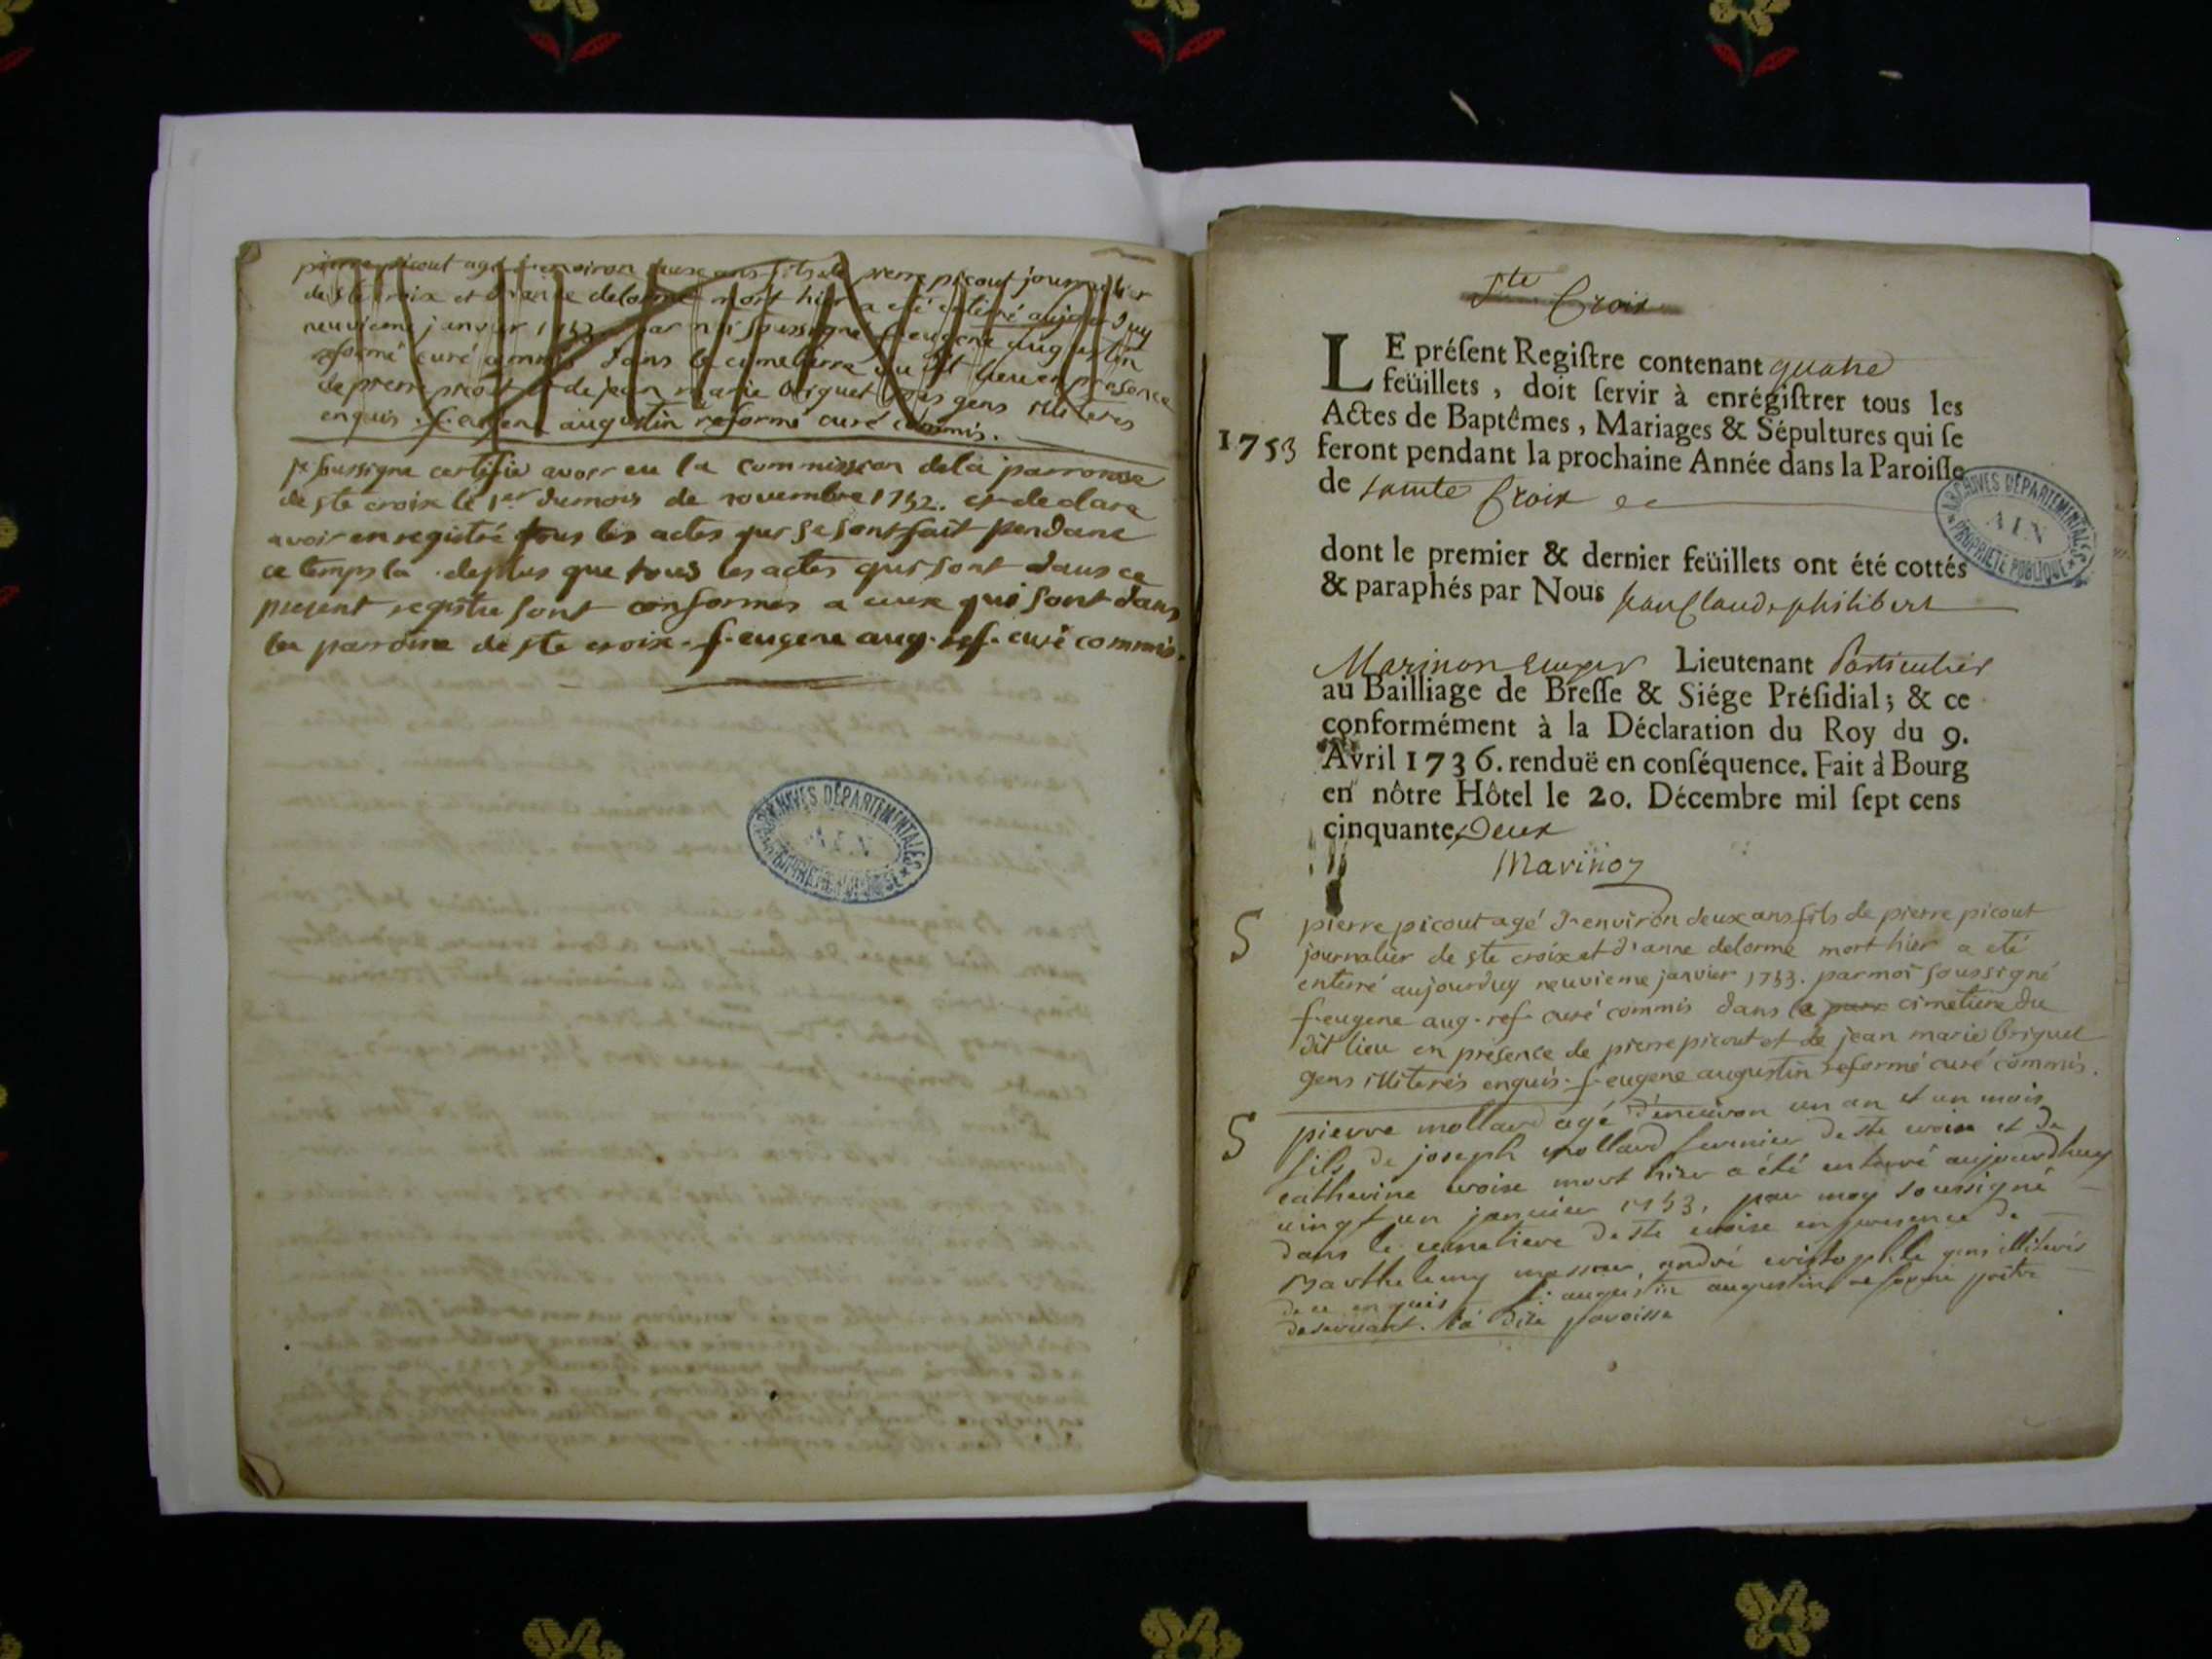 pierre picout agé d'environ deux ans fils de pierre picout journalier
de ste croix et d'anne delorme mort hier a eté enterré aujourduy
neuvieme janvier 1753 par moi soussigné f. eugene augustin
reformé curé commis dans le cimetierre du dit lieu en presence
de pierre picout et de jean marie briquet tous gens illiterés
enquis. f. eugene augustin reformé curé commis.
je soussigne certifie avoir eu la commission de la parroisse
de ste croix le 1er du mois de novembre 1752. et declare
avoir enregistré tous les actes qui se sont fait pendant
ce temps la. de plus que tous les actes qui sont dans ce
present registre sont conformes a ceux qui sont dans
la parroisse de ste croix. f. eugene aug. ref. curé commis.
ARCHIVES DÉPARTEMENTALES
AIN
PROPRIÉTÉ PUBLIQUE
Ste Croix
LE préſent Regiſtre contenant quatre
feüillets, doit ſervir à enrégiſtrer tous les
Actes de Baptêmes, Mariages & Sépultures qui ſe
1753 feront pendant la prochaine Année dans la Paroiſſe
de sainte Croix
ARCHIVES DÉPARTEMENTALES
AIN
PROPRIÉTÉ PUBLIQUE
dont le premier & dernier feüillets ont été cottés
& paraphés par Nous Jean Claude philibert
Marinon Lieutenant Particulier
au Bailliage de Breſſe & Siége Préſidial; & ce
conformément à la Déclaration du Roy du 9.
Avril 1736. renduë en conſéquence. Fait à Bourg
en nôtre Hôtel le 20. Décembre mil ſept cens
cinquante Deux
Marinon
S pierre picout agé d'environ deux ans fils de pierre picout
journalier de ste croix et d'anne delorme mort hier a eté
enterré aujourduy neuvieme janvier 1753. par moi soussigné
f. eugene aug. ref. curé commis dans le cimetiere du
dit lieu en presence de pierre picout et de jean marie briquet
gens illiterés enquis. f. eugene augustin reformé curé commis.
S pierre mollard agé d'enuiron un an et un mois
fils de joseph mollard fermier de ste croix et de
catherine croix mort hier a été enterré aujourdhuy
uingt un januier 1753, par moy soussigné
dans le cemetiere de ste croix en presence de
Barthelemy messon, andré cristophle gens illiterés
de ce enquis f. augustin augustin reformé prêtre
deseruant la dite paroisse